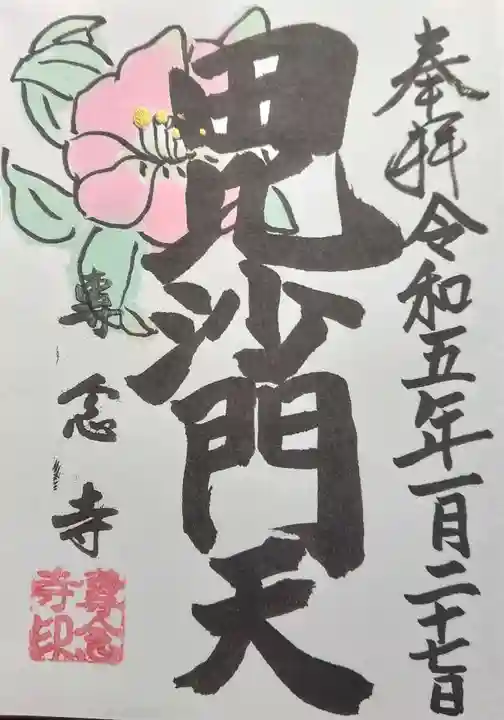 奉拝令和五年一月二十七日
毘沙門天
專念寺
專念寺印